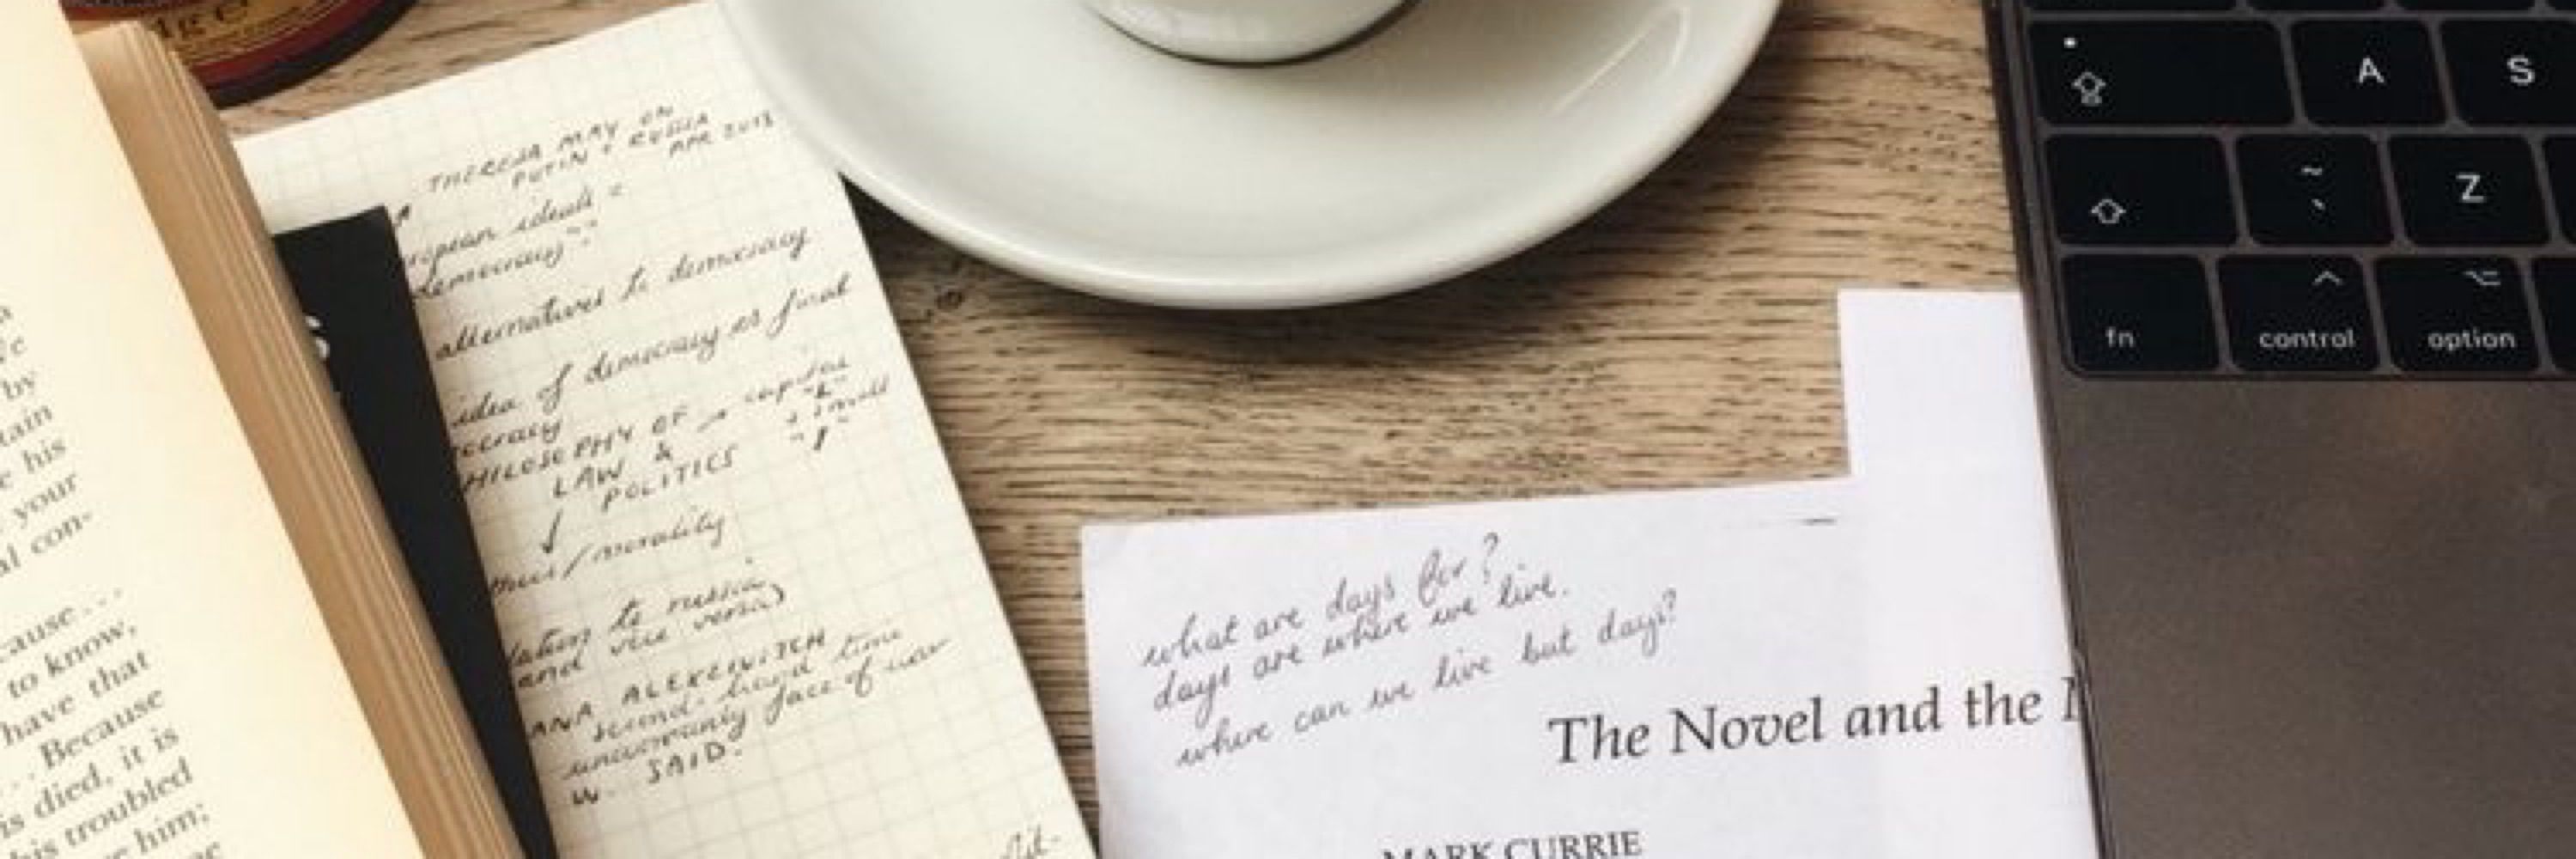 by
tain
his
your
al con-
cause...
to know,
have that
Because
is died, it is
his troubled
him;
THERESA MAY ON
PUTIN + RUSSIA
APR 2018
ideals =
democracy"
alternatives to democracy
idea of democracy as final
PHILOSOPHY OF → capital
LAW & + small
POLITICS
/morality
to russia
and vice versa)
ALEXEIVITCH
second-hand time
unwomanly face of war
W. SAID.
what are days for?
days are where we live.
where can we live but days?
The Novel and the
MARK CURRIE
A S
~
` Z
fn control option